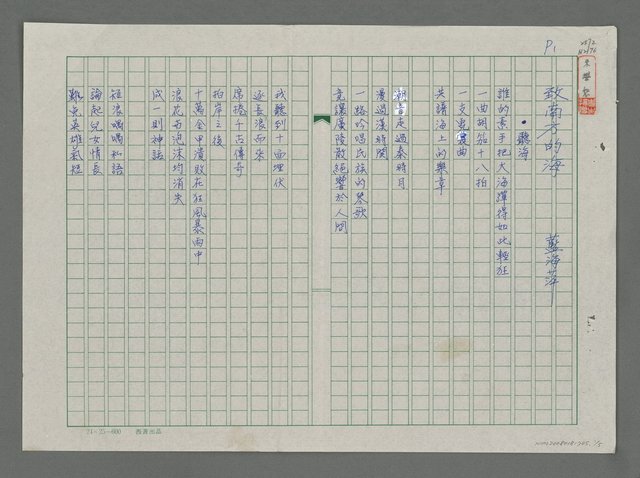 P1
致南方的海
藍海萍
•聽海
誰的素手把大海彈得如此輕狂
一曲胡笳十八拍
一支衷曲
共譜海上的樂章
潮音走過秦時月
漫過漢時關
一路吟唱民族的琴歌
竟讓廣陵散絕響於人間
我聽到十面埋伏
逐長浪而來
席捲千古傳奇
拍岸之後
十萬金甲潰敗在狂風暴雨中
浪花与泡沫均消失
成一則神話
短浪喁喁私語
論起兒女情長
難免英雄氣短
24×25=600